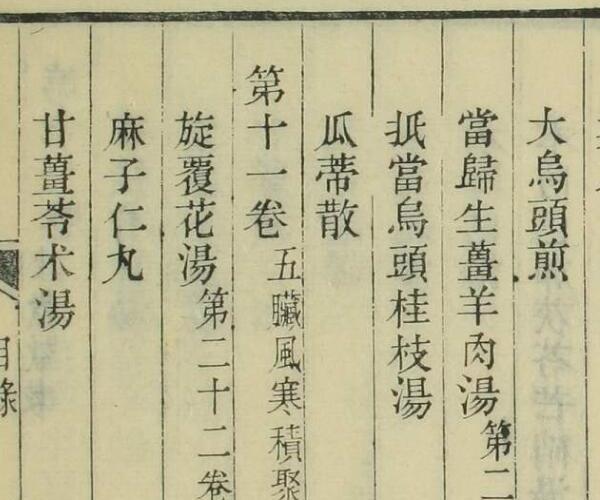 大烏頭煎
當歸生薑羊肉湯第二
抵當烏頭桂枝湯
瓜蒂散
第十一卷五臟風寒積聚
旋覆花湯第二十二卷
麻子仁丸
甘薑苓术湯
目錄